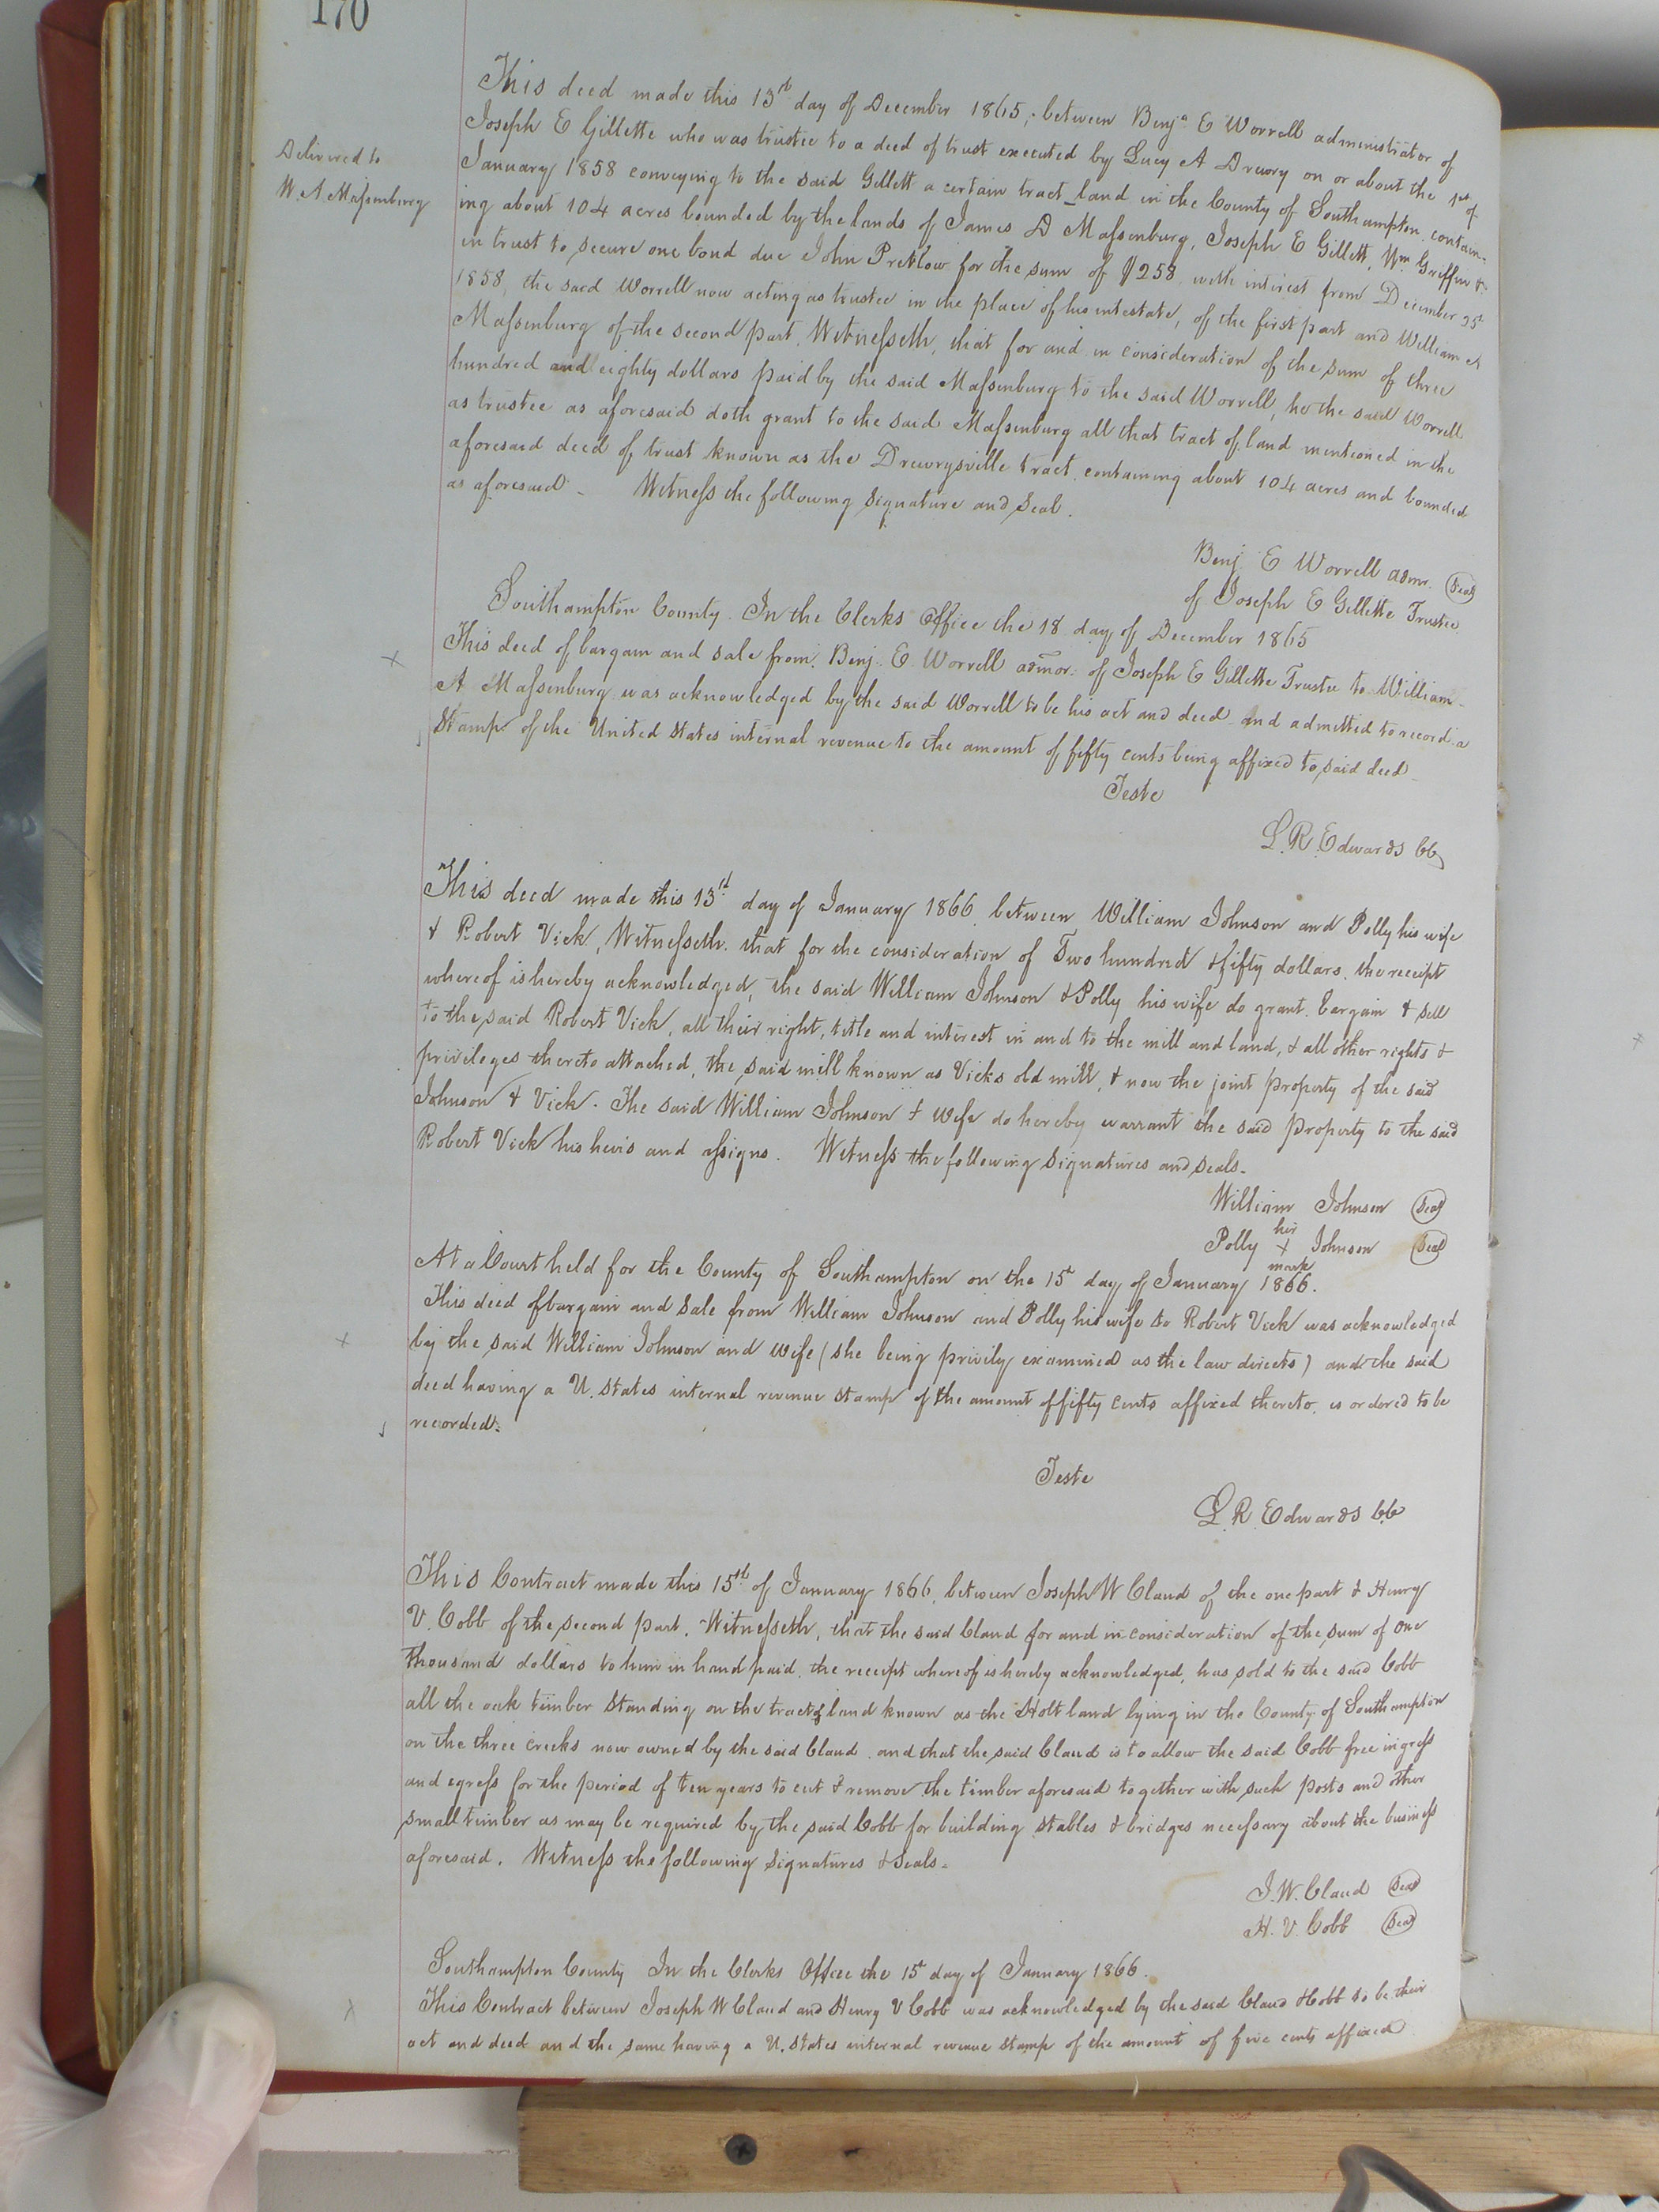 170
This deed made this 13th day of December 1865; between Benja E Worrell administrator of
Joseph E Gillette who was trustee to a deed of trust executed by Lucy A Drewry on or about the 1st of
Delivered to
W. A. Massenburg
January 1858 conveying to the said Gillett a certain tract land in the County of Southampton contain-
ing about 104 acres bounded by the lands of James D Massenburg, Joseph E Gillett, Wm Griffin &
in trust to secure one bond due John Pretlow for the sum of $258 with interest from December 25t
1858, the said Worrell now acting as trustee in the place of his intestate, of the first part and William A
Massenburg of the second part, Witnesseth, that for and in consideration of the sum of three
hundred and eighty dollars paid by the said Massenburg to the said Worrell, he the said Worrell
as trustee as aforesaid doth grant to the said Massenburg all that tract of land mentioned in the
aforesaid deed of trust known as the Drewrysville tract containing about 104 acres and bounded
as aforesaid - Witness the following signature and seal.
Benj. E Worrell admr. (Seal)
of Joseph E Gillette Trustee
Southampton County. In the Clerks Office the 18 day of December 1865
This deed of bargain and sale from Benj. E. Worrell admor: of Joseph E Gillette Trustee to William
A Massenburg was acknowledged by the said Worrell to be his act and deed and admitted to record a
Stamp of the United States internal revenue to the amount of fifty cents being affixed to said deed
Teste
L. R. Edwards CC
This deed made this 13th day of January 1866 between William Johnson and Polly his wife
& Robert Vick, Witnesseth. that for the consideration of Two hundred & fifty dollars, the receipt
whereof is hereby acknowledged, the said William Johnson & Polly his wife do grant. bargain & sell
to the said Robert Vick, all their right, title and interest in and to the mill and land, & all other rights &
privileges thereto attached, the said mill known as Vicks old mill, & now the joint property of the said
Johnson & Vick. The said William Johnson & wife do hereby warrant the said property to the said
Robert Vick his heirs and assigns. Witness the following signatures and seals.
William Johnson (Seal)
her
Polly + Johnson (Seal)
mark
At a Court held for the County of Southampton on the 15t day of January 1866.
This deed of bargain and sale from William Johnson and Polly his wife to Robert Vick was acknowledged
by the said William Johnson and wife (she being privily examined as the law directs) and the said
deed having a U. States internal revenue stamp of the amount of fifty cents affixed thereto, is ordered to be
recorded.
Teste
L. R. Edwards CC
This Contract made this 15th of January 1866, between Joseph W Claud of the one part & Henry
V. Cobb of the second part. Witnesseth, that the said Claud for and in consideration of the sum of one
thousand dollars to him in hand paid, the receipt whereof is hereby acknowledged, has sold to the said Cobb
all the oak timber standing on the tract of land known as the Holt land lying in the County of Southampton
on the three creeks now owned by the said Claud. and that the said Claud is to allow the said Cobb free ingress
and egress for the period of ten years to cut & remove the timber aforesaid together with such posts and other
small timber as may be required by the said Cobb for building stables & bridges necessary about the business
aforesaid. Witness the following signatures & seals.
J. W. Claud (Seal)
H. V. Cobb (Seal)
Southampton County In the Clerks Office the 15t day of January 1866.
This Contract between Joseph W Claud and Henry V Cobb was acknowledged by the said Claud & Cobb to be their
act and deed and the same having a U. States internal revenue stamp of the amount of five cents affixed